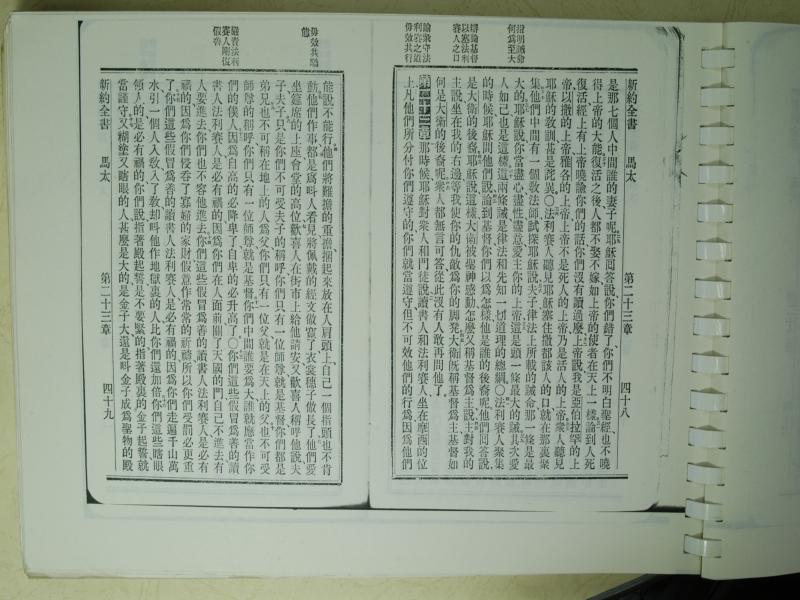 新約全書 馬太 第二十三章 四十八
辯明誡命何爲至大
辯論基督以塞法利賽人之口
諭衆守法利賽之道毋效其行
是那七個人中間誰的妻子呢耶穌回答說你們錯了你們不明白聖經也不曉
得上帝的大能復活之後人都不娶不嫁如上帝的使者在天上一樣論到人死
復活經上有上帝曉諭你們的話你們沒有讀過麼上帝說我是亞伯拉罕的上
帝以撒的上帝雅各的上帝上帝不是死人的上帝乃是活人的上帝衆人聽見
耶穌的教訓甚是詫異○法利賽人聽見耶穌塞住撒都該人的口就在那裏聚
集他們中間有一個教法師試探耶穌說夫子律法上所載的誡命那一條是最
大的耶穌說你當盡心盡性盡意愛主你的上帝這是頭一條最大的誡其次愛
人如己也是這樣這兩條誡是律法和先知一切道理的總綱○法利賽人聚集
的時候耶穌問他們說論到基督你們以爲怎樣他是誰的後裔呢他們回答說
是大衛的後裔耶穌說這樣大衛被聖神感動怎麼又稱基督爲主說主對我的
主說坐在我的右邊等我使你的仇敵爲你的脚凳大衛旣稱基督爲主基督如
何是大衛的後裔呢衆人都無言可答從此沒有人敢再問他了
第二十三章 那時候耶穌對衆人和門徒說讀書人和法利賽人坐在摩西的位
上凡他們所分付你們遵守的你們就當遵守但不可效他們的行爲因爲他們
毋效其驕傲
嚴責法利賽人剛愎假善
能說不能行他們將難擔的重擔捆起來放在人肩頭上自己一個指頭也不肯
動他們作事都是爲叫人看見將佩戴的經文做寬了衣裳繸子做長了他們愛
坐筵席的上座會堂的高位歡喜人在街市上給他請安又歡喜人稱呼他說夫
子夫子只是你們不可受夫子的稱呼你們只有一位師尊就是基督你們都是
弟兄也不可稱在地上的人爲父你們只有一位父就是在天上的父也不可受
師尊的稱呼你們只有一位師尊就是基督你們中間誰要爲大誰就應當作你
們的僕人因爲自高的必降卑了自卑的必升高了○你們這些假冒爲善的讀
書人法利賽人是必有禍的因爲你們在人面前關了天國的門自己不進去有
人要進去你們也不容他進去你們這些假冒爲善的讀書人法利賽人是必有
禍的因爲你們侵呑了寡婦的家財假意作常常的祈禱所以你們受罰必更重
了你們這些假冒爲善的讀書人法利賽人是必有禍的因爲你們走遍千山萬
水引一個人入敎入了敎却叫他作地獄裏的人比你們還加倍你們這些瞎眼
領人的是必有禍的你們說指著殿起誓是不要緊的指著殿裏的金子起誓就
當謹守又糊塗又瞎眼的人甚麼是大的是金子大還是叫金子成爲聖物的殿
新約全書 馬太 第二十三章 四十九